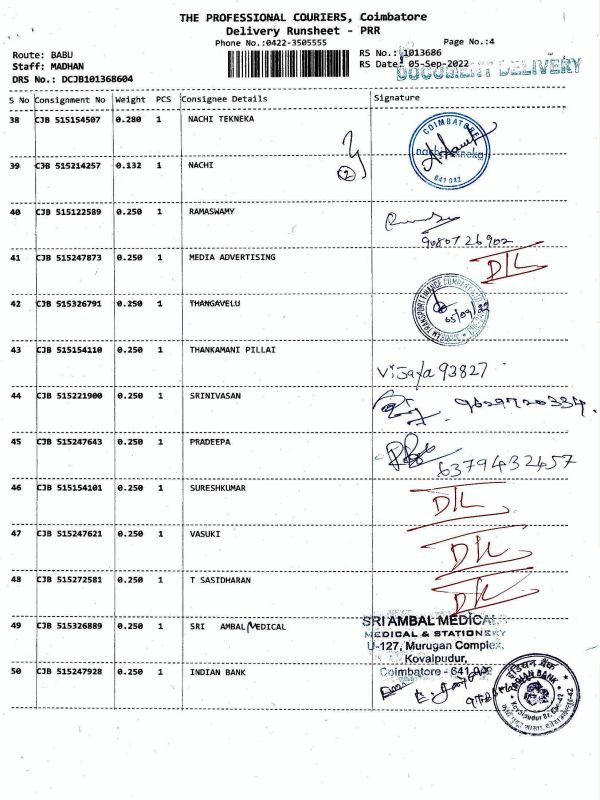 THE PROFESSIONAL COURIERS, Coimbatore
Delivery Runsheet - PRR
Phone No.:0422-3505555
Page No.:4
Route: BABU
RS No.: 1013686
Staff: MADHAN
RS Date: 05-Sep-2022
DOCUMENT DELIVERY
DRS No.: DCJB101368604
S No Consignment No Weight PCS Consignee Details Signature
38 CJB 515154507 0.280 1 NACHI TEKNEKA
COIMBATORE
641 042
39 CJB 515214257 0.132 1 NACHI
2
40 CJB 515122589 0.250 1 RAMASWAMY
9080726902
41 CJB 515247873 0.250 1 MEDIA ADVERTISING
D/L
42 CJB 515326791 0.250 1 THANGAVELU
SHRIRAM TRANSPORT FINANCE COMPANY
05/09/22
43 CJB 515154110 0.250 1 THANKAMANI PILLAI
Vijaya 93827
44 CJB 515221900 0.250 1 SRINIVASAN
9629720334.
45 CJB 515247643 0.250 1 PRADEEPA
6379432457
46 CJB 515154101 0.250 1 SURESHKUMAR
D/L
47 CJB 515247621 0.250 1 VASUKI
D/L
48 CJB 515272581 0.250 1 T SASIDHARAN
D/L
49 CJB 515326889 0.250 1 SRI AMBAL MEDICAL
SRI AMBAL MEDICALS
MEDICAL & STATIONERY
U-127, Murugan Complex,
Kovaipudur,
Coimbatore - 641 042
50 CJB 515247928 0.250 1 INDIAN BANK
इंडियन बैंक
INDIAN BANK